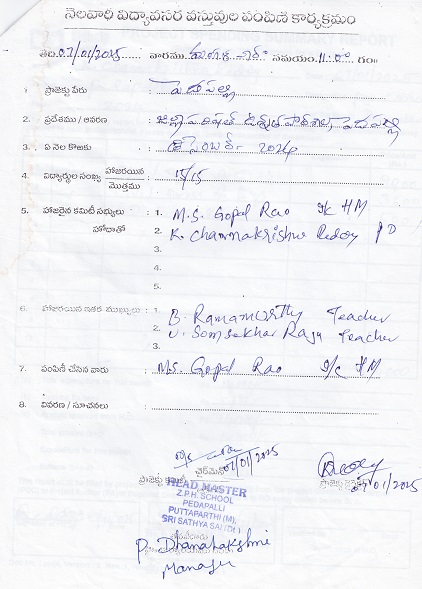 నెలవారీ విద్యావసర వస్తువుల పంపిణీ కార్యక్రమం
తేది: 07/01/2025 వారము: మంగళ వారం సమయం: 11:00 గం॥
1. ప్రాజెక్టు పేరు : పెదపల్లి
2. ప్రదేశము / ఆవరణ : జిల్లా పరిషత్ ఉన్నత పాఠశాల, పెదపల్లి
3. ఏ నెల కొఱకు : డిసెంబర్ - 2024
4. విద్యార్థుల సంఖ్య హాజరయిన : 15/15
మొత్తము
5. హాజరైన కమిటీ సభ్యులు : 1. M.S. Gopal Rao I/c HM
హోదాతో 2. K. Channakrishna Reddy PD
3.
4.
5.
6. హాజరయిన ఇతర ముఖ్యులు : 1. B. Ramamurthy Teacher
2. V. Somsekhar Raju Teacher
3.
7. పంపిణీ చేసిన వారు : M.S. Gopal Rao I/c HM
8. వివరణ / సూచనలు :
07/01/2025
ఛైర్మెన్
ప్రాజెక్టు కమిటీ
07/01/2025
HEAD MASTER
Z.P.H. SCHOOL
PEDAPALLI
PUTTAPARTHI (M),
SRI SATHYA SAI (Dt.)
P. Dhanalakshmi
Manager